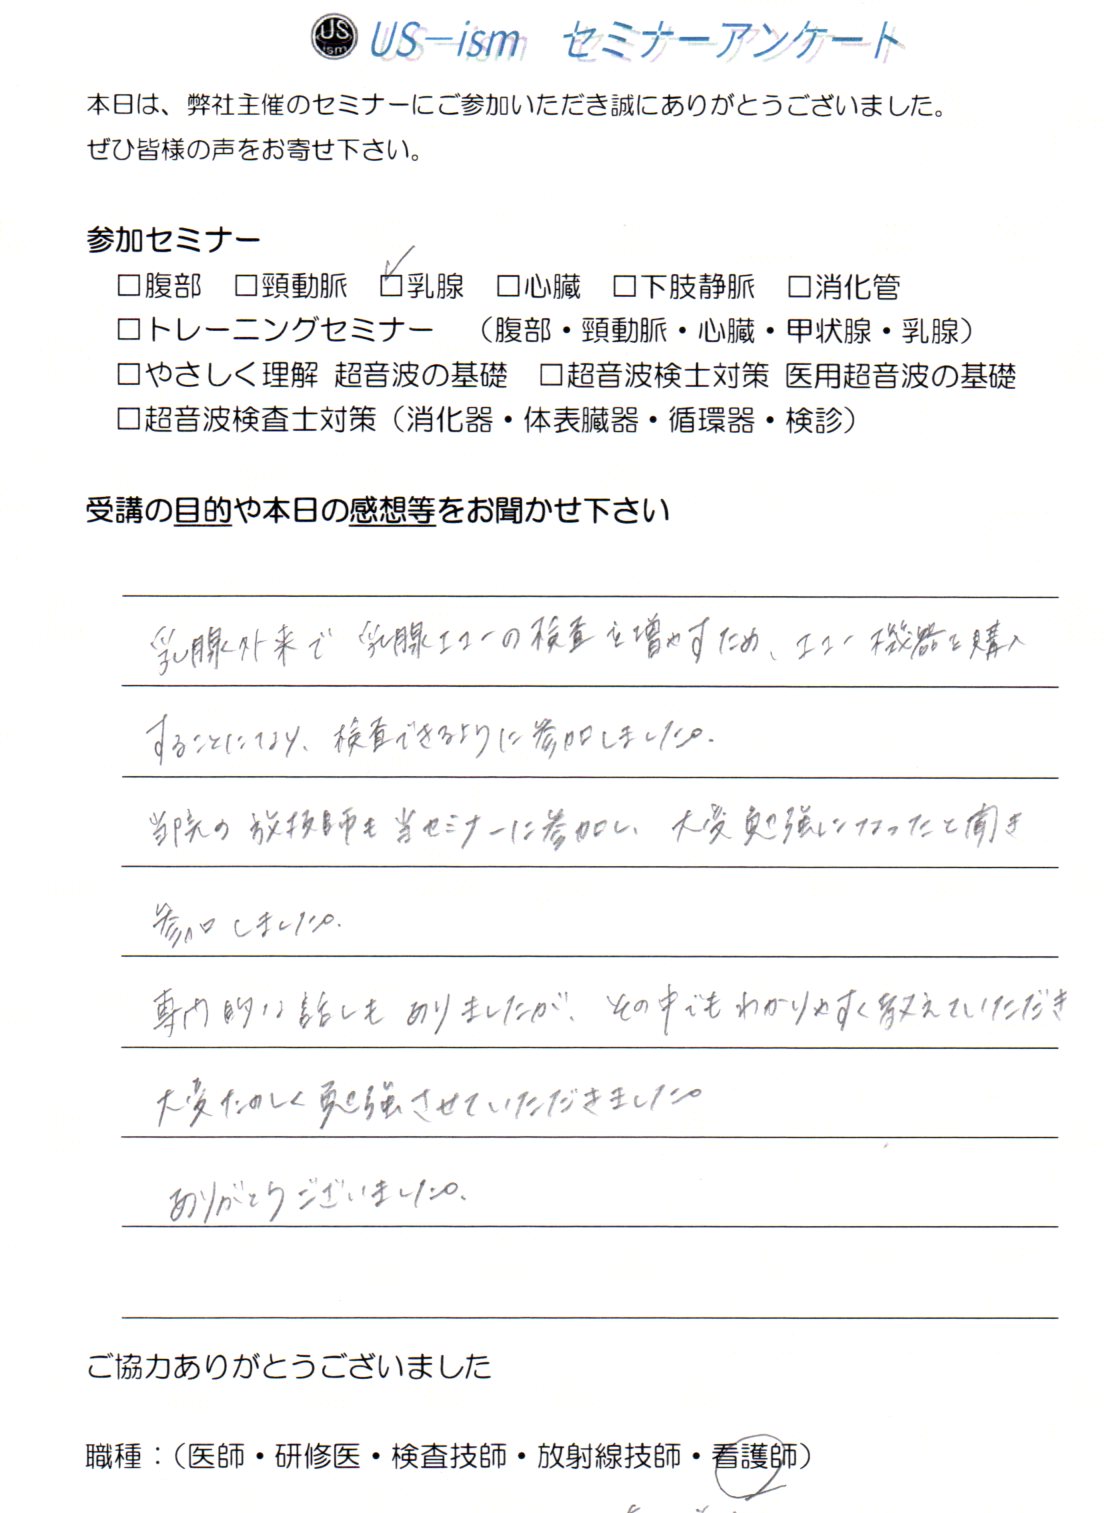 US ism US-ism セミナーアンケート
本日は、弊社主催のセミナーにご参加いただき誠にありがとうございました。
ぜひ皆様の声をお寄せ下さい。
参加セミナー
□腹部 □頸動脈 ☑乳腺 □心臓 □下肢静脈 □消化管
□トレーニングセミナー （腹部・頸動脈・心臓・甲状腺・乳腺）
□やさしく理解 超音波の基礎 □超音波検士対策 医用超音波の基礎
□超音波検査士対策（消化器・体表臓器・循環器・検診）
受講の目的や本日の感想等をお聞かせ下さい
乳腺外来で乳腺エコーの検査を増やすため、エコー機器を購入
することになり、検査できるように参加しました。
当院の放技師も当セミナーに参加し、大変勉強になったと聞き
参加しました。
専門的な話しもありましたが、その中でもわかりやすく教えていただき
大変たのしく勉強させていただきました。
ありがとうございました。
ご協力ありがとうございました
職種：（医師・研修医・検査技師・放射線技師・看護師）